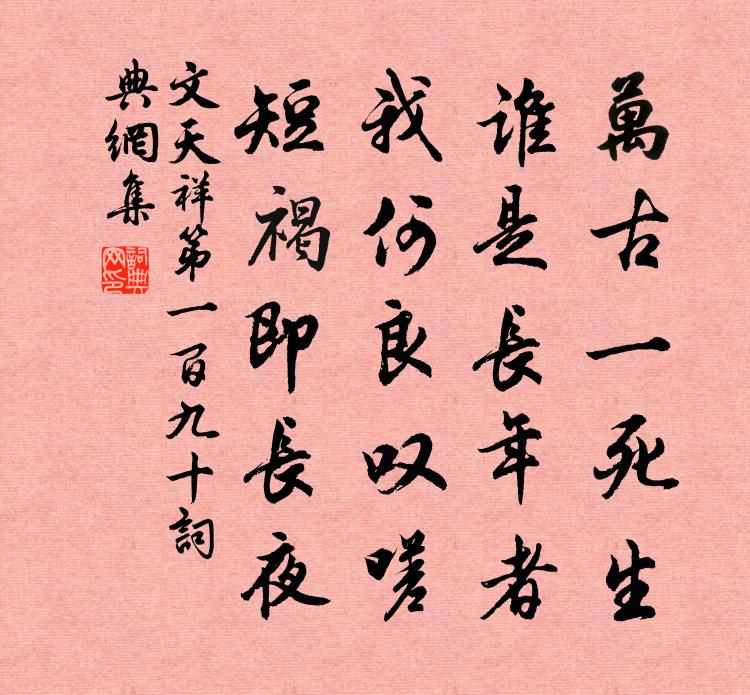 萬古一死生
誰是長年者
我何良叹嗟
短褐即長夜
文天祥第一百九十詞
典網集
詞典
网印